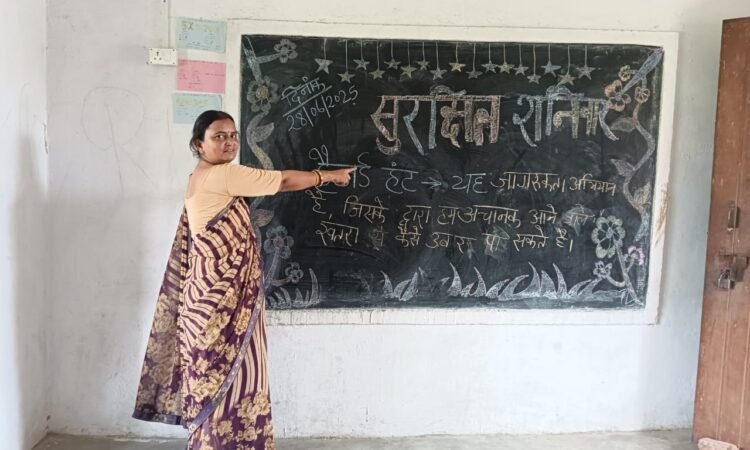 दिनांक
28/06/2025
सुरक्षित शनिवार
हैजर्ड हंट → यह जागरूकता अभियान
है, जिसके द्वारा हम अचानक आने वाले
खतरा से कैसे उबार पा सकते हैं।